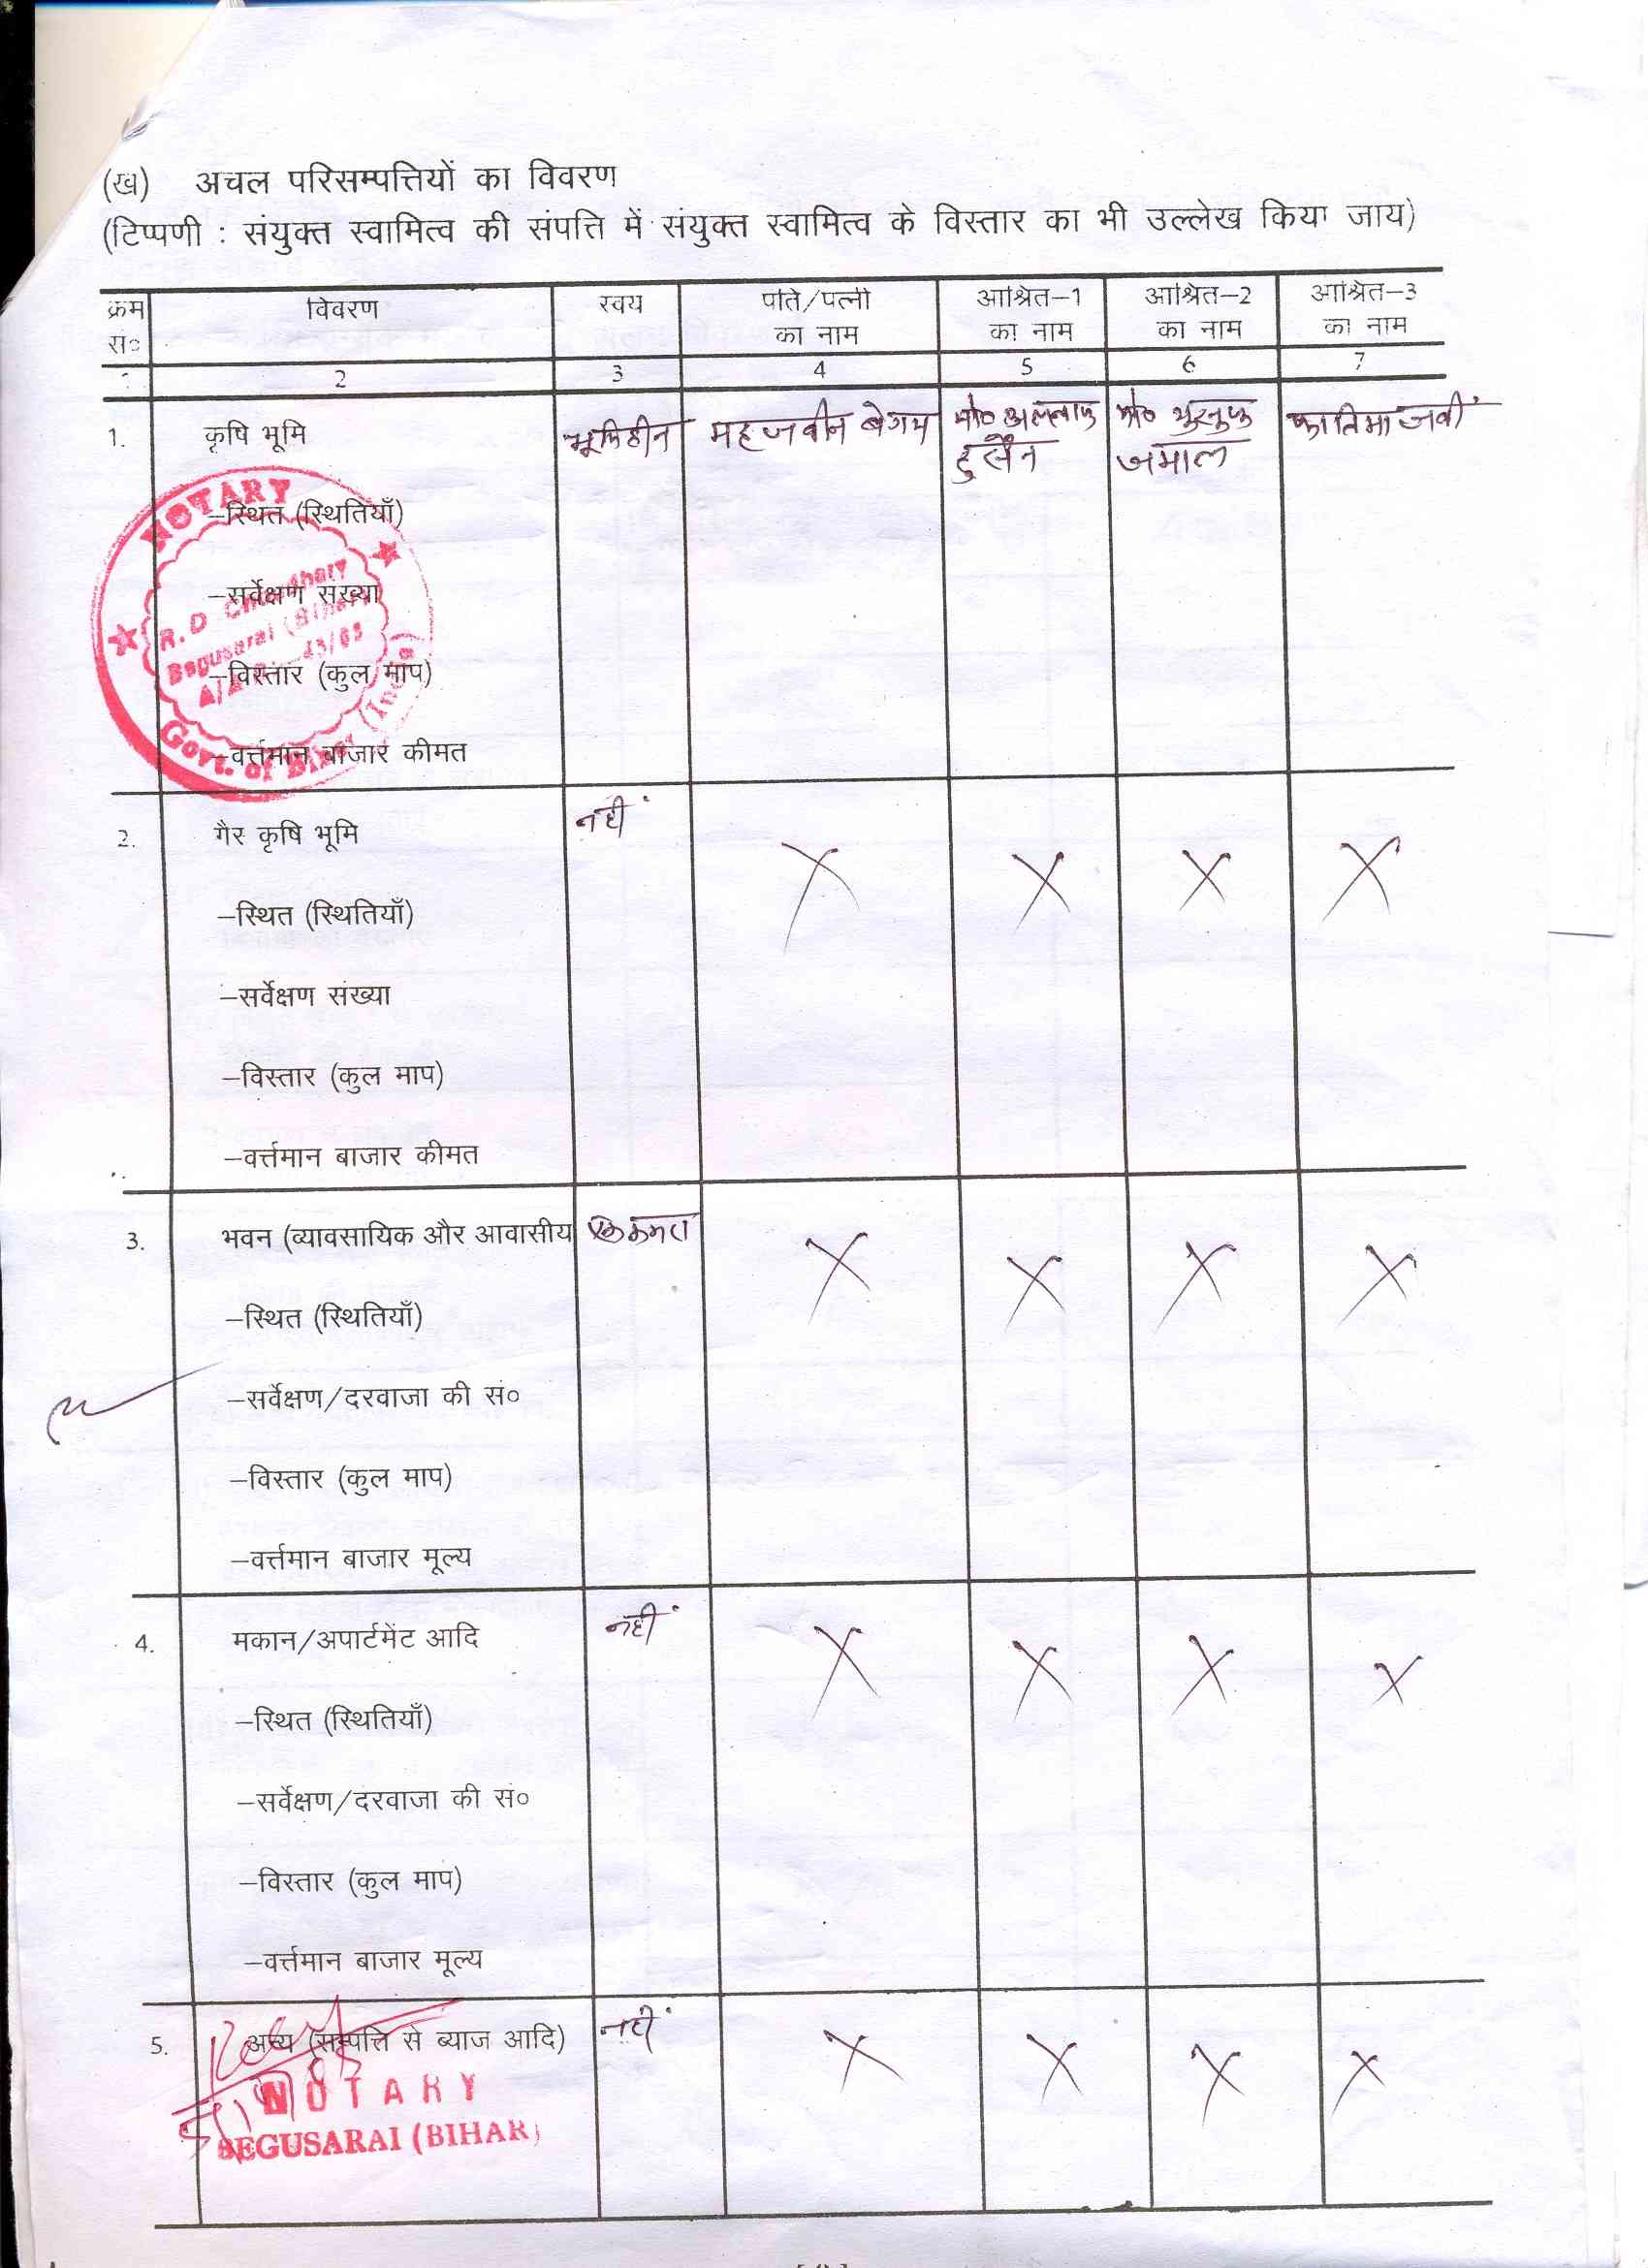 (ख) अचल परिसम्पत्तियों का विवरण
(टिप्पणी : संयुक्त स्वामित्व की संपत्ति में संयुक्त स्वामित्व के विस्तार का भी उल्लेख किया जाय)
क्रम सं० विवरण स्वयं पति/पत्नी का नाम आश्रित–1 का नाम आश्रित–2 का नाम आश्रित–3 का नाम
2 3 4 5 6 7
1. कृषि भूमि भूमिहीन महजबीन बेगम मो० अल्ताफ हुसैन मो० जमाल फातिमा जबीं
–स्थित (स्थितियाँ)
–सर्वेक्षण संख्या
–विस्तार (कुल माप)
–वर्त्तमान बाजार कीमत
NOTARY
R.D Choudhary
Begusarai (Bihar)
Govt. of Bihar (India)
2. गैर कृषि भूमि नहीं X X X X
–स्थित (स्थितियाँ)
–सर्वेक्षण संख्या
–विस्तार (कुल माप)
–वर्त्तमान बाजार कीमत
3. भवन (व्यावसायिक और आवासीय एक कमरा X X X X
–स्थित (स्थितियाँ)
–सर्वेक्षण/दरवाजा की सं०
–विस्तार (कुल माप)
–वर्त्तमान बाजार मूल्य
4. मकान/अपार्टमेंट आदि नहीं X X X X
–स्थित (स्थितियाँ)
–सर्वेक्षण/दरवाजा की सं०
–विस्तार (कुल माप)
–वर्त्तमान बाजार मूल्य
5. अन्य (सम्पत्ति से ब्याज आदि) नहीं X X X X
NOTARY
BEGUSARAI (BIHAR)